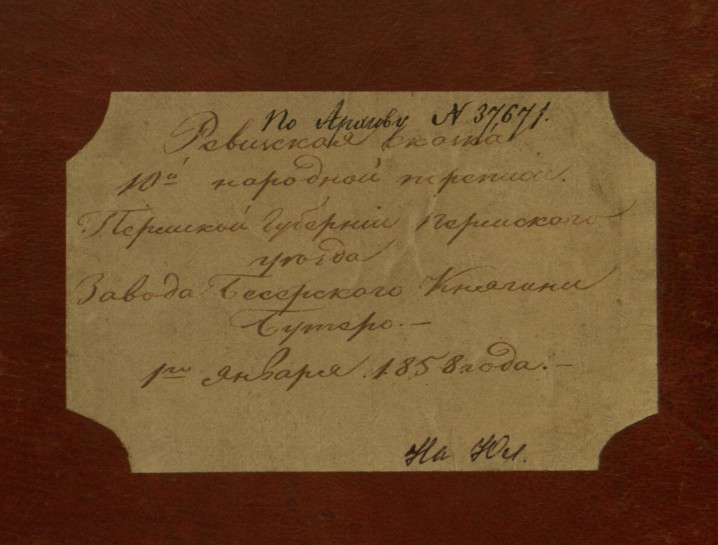 По Архиву N 37671.
Ревизская сказка
10й народной переписи.
Пермской Губернiи Пермскаго
уѣзда
Завода Бисерскаго Княгини
Бутеро.—
1го января 1858 года.—
На